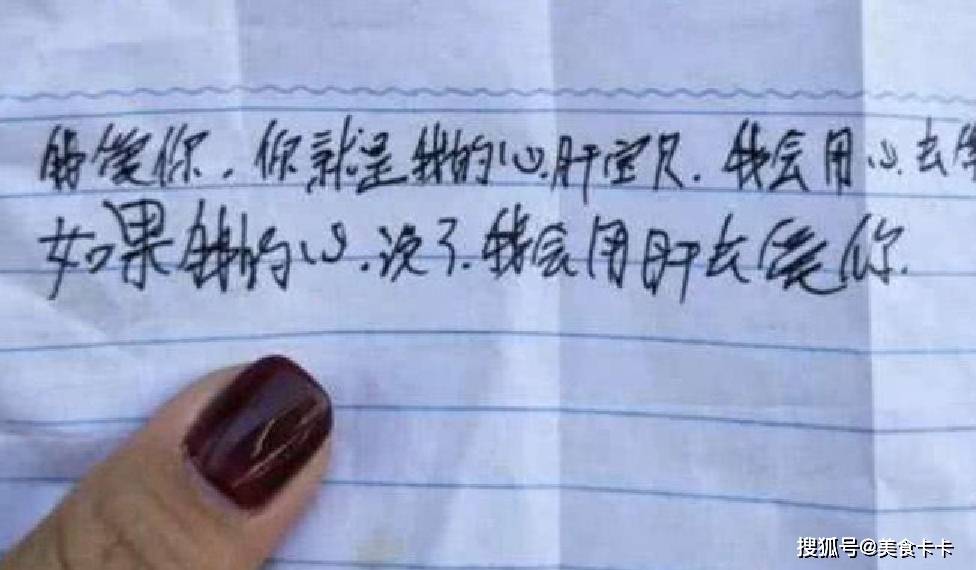 的爱你.你就是我的心.肝宝贝.我会用心.去
如果我的心.没了.我会用肝去爱你.
搜狐号@美食卡卡